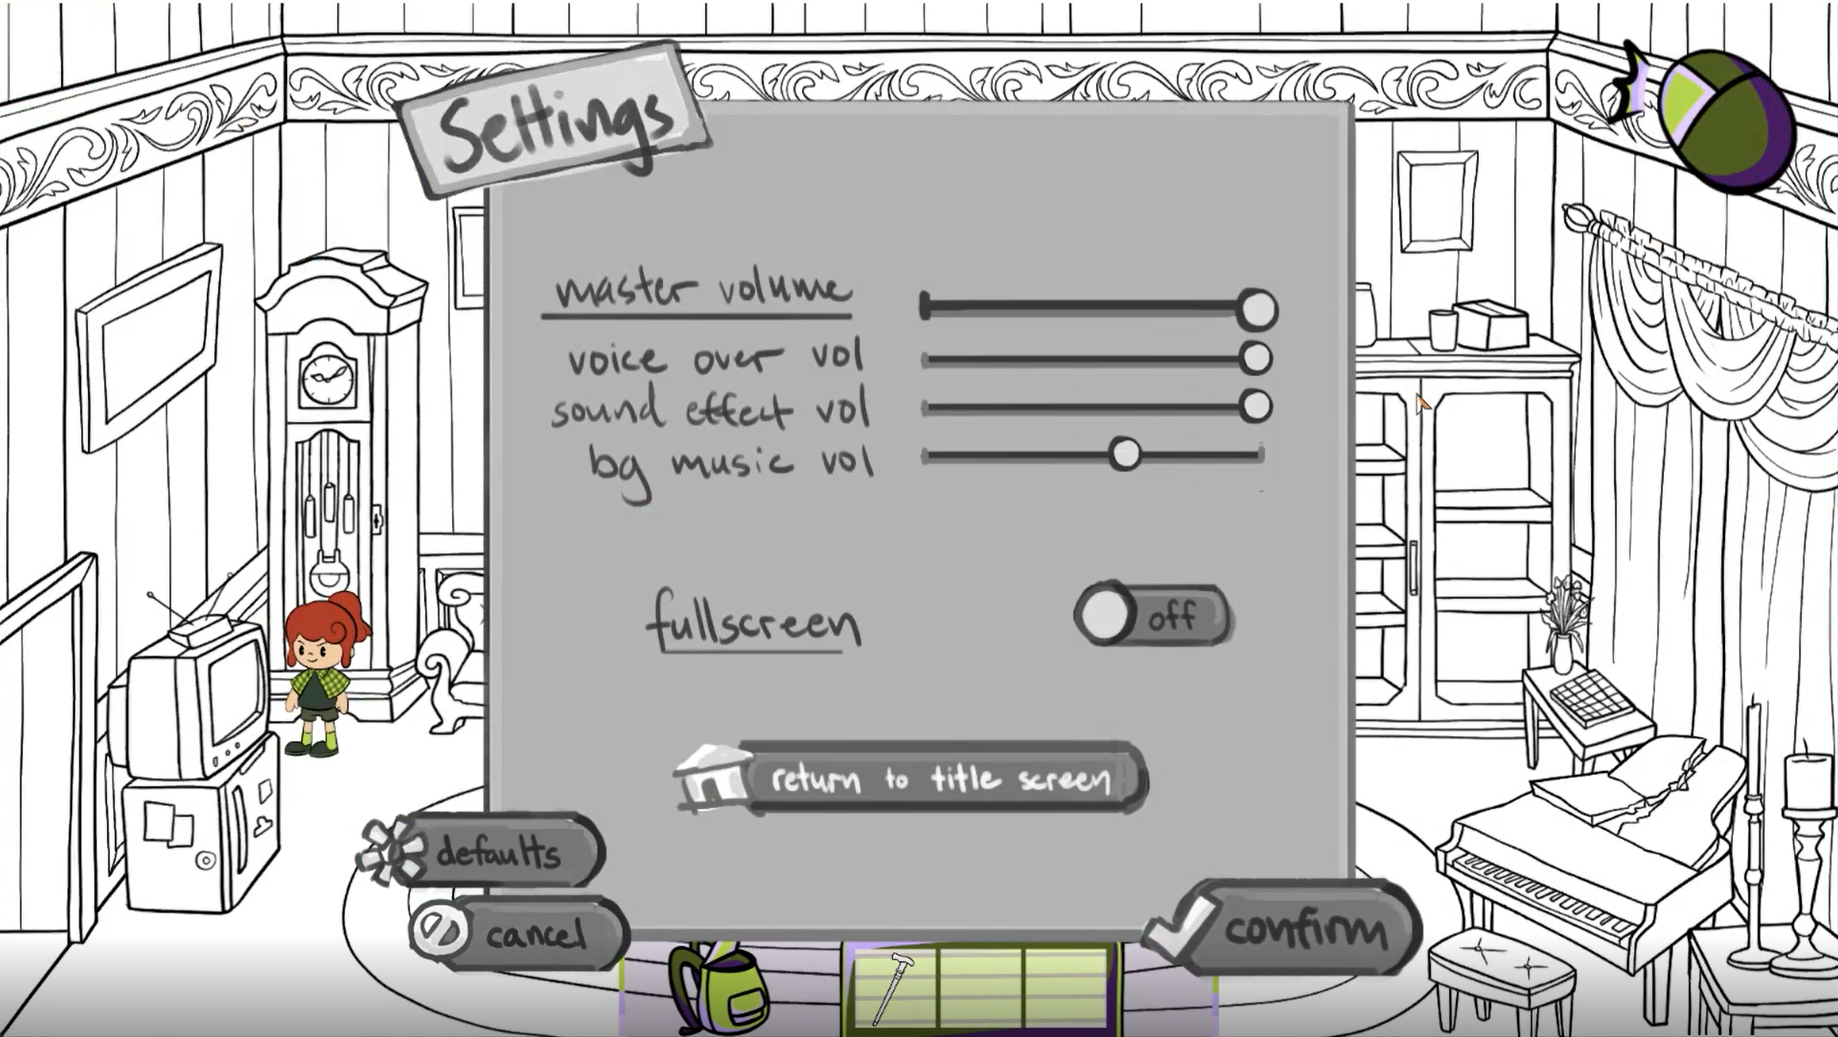 Settings
master volume
voice over vol
sound effect vol
bg music vol
fullscreen
off
return to title screen
defaults
cancel
confirm